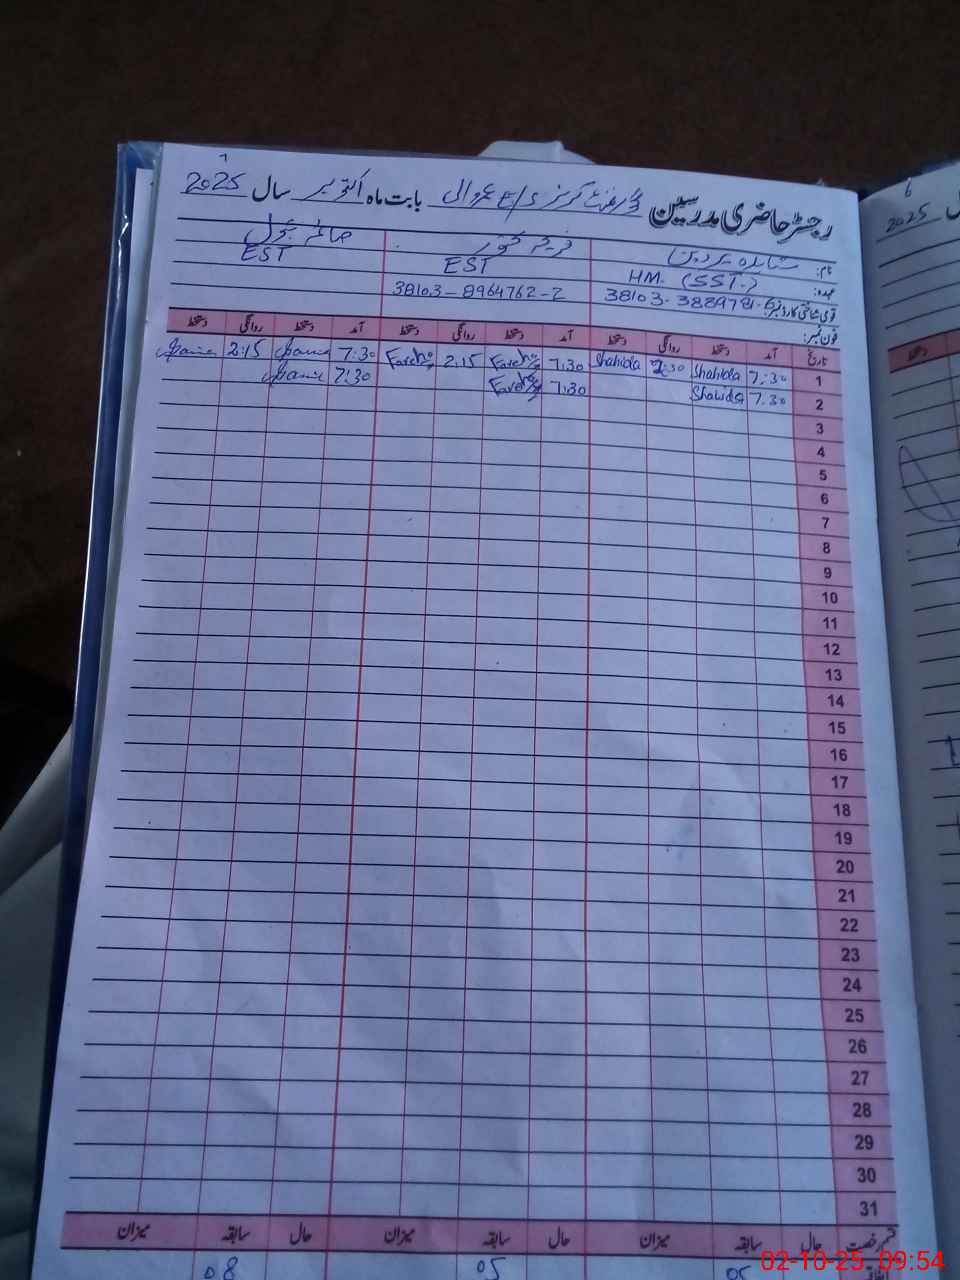 رجسٹر حاضری مدرسین گورنمنٹ گرلز E/S عموالی بابت ماہ اکتوبر سال 2025
نام: شاہدہ پروین فریحہ کنور صائمہ بتول
عہدہ: HM. (SST.) EST EST
قومی شناختی کارڈ نمبر: 38103-8964762-2
فون نمبر:
تاریخ آمد دستخط روانگی دستخط آمد دستخط روانگی دستخط آمد دستخط روانگی دستخط
1 7:30 Shahida 2:30 Shahida 7:30 2:15 7:30 2:15
2 7.30 Shahida 7:30 7:30
3
4
5
6
7
8
9
10
11
12
13
14
15
16
17
18
19
20
21
22
23
24
25
26
27
28
29
30
31
قسم رخصت حال سابقہ میزان حال سابقہ میزان حال سابقہ میزان
05 05 08
2025
دستخط
02-10-25 09:54